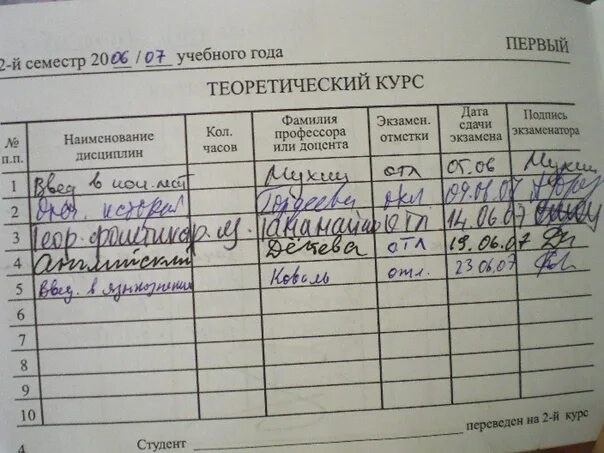 2-й семестр 2006/07 учебного года ПЕРВЫЙ
ТЕОРЕТИЧЕСКИЙ КУРС
№ п.п. Наименование дисциплин Кол. часов Фамилия профессора или доцента Экзамен. отметки Дата сдачи экзамена Подпись экзаменатора
1 Введ в Мухин отл 05.06 Мухин
2 Гордеева 09.06.07
3 Теор. фонетика р.я. отл 14.06.07
4 Английский отл 19.06.07
5 Введ. в языкознание Коваль отл. 23.06.07
6
7
8
9
10
4 Студент переведен на 2-й курс